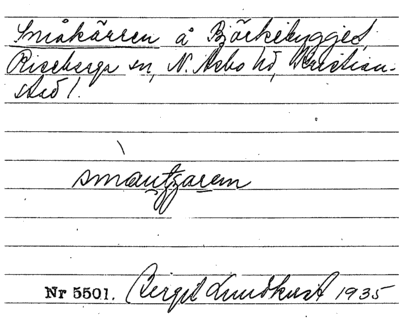 Småkärren å Björkebygget,
Riseberga sn, N. Åsbo hd, Kristian-
stad l.
Nr 5501. Birgit Lundkvist 1935